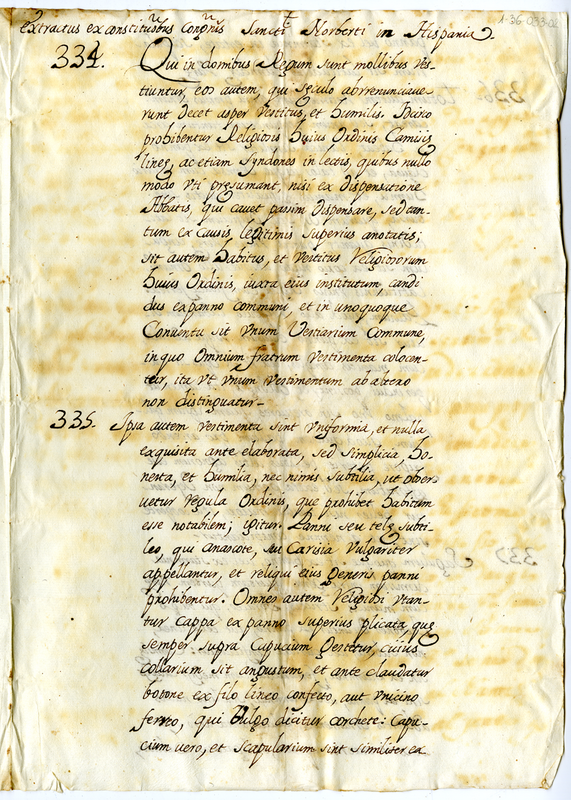 1-36 033-02
Extractus ex constitutibus congnis Sancti Norberti in Hispania.
334. Qui in domibus Regum sunt mollibus ves-
tiuntur, eos autem, qui seculo abrrenunciave-
runt decet asper vestitus, et humilis. Hinc
prohibentur Religiosis huius Ordinis Camisię
lineę, ac etiam syndones in lectis, quibus nullo
modo vti pręsumant, nisi ex dispensatione
Abbatis, qui cavet passim dispensare, sed tan-
tum ex Causis legitimis superius anotatis;
sit autem habitus, et vestitus Religiosorum
huius Ordinis, iuxta eius institutum, candi
dus ex panno communi, et in unoquoque
Conventu sit vnum Vestiarium Commune,
in quo Omnium fratrum vestimenta colocen-
tur, ita vt vnum vestimentum ab altero
non distinguatur-
335. Ipsa autem vestimenta sint vniformia, et nulla
exquisita ante elaborata, sed simplicia, ho-
nesta, et humilia, nec nimis subtilia, ut obser-
vetur regula Ordinis, que prohibet habitum
esse notabilem; igitur Panni seu telę subti-
les, qui anascote, seu Carisia vulgariter
appellantur, et reliqui eius generis panni
prohibentur. Omnes autem Religiosi vtan-
tur Cappa ex panno superius plicata, quę
semper supra Capucium gestetur, cuius
collarium sit angustum, et ante claudatur
botone ex filo lineo confecto, aut vncino
ferreo, qui vulgo dicitur corchete: Capu-
cium vero, et scapularium sint similiter ex